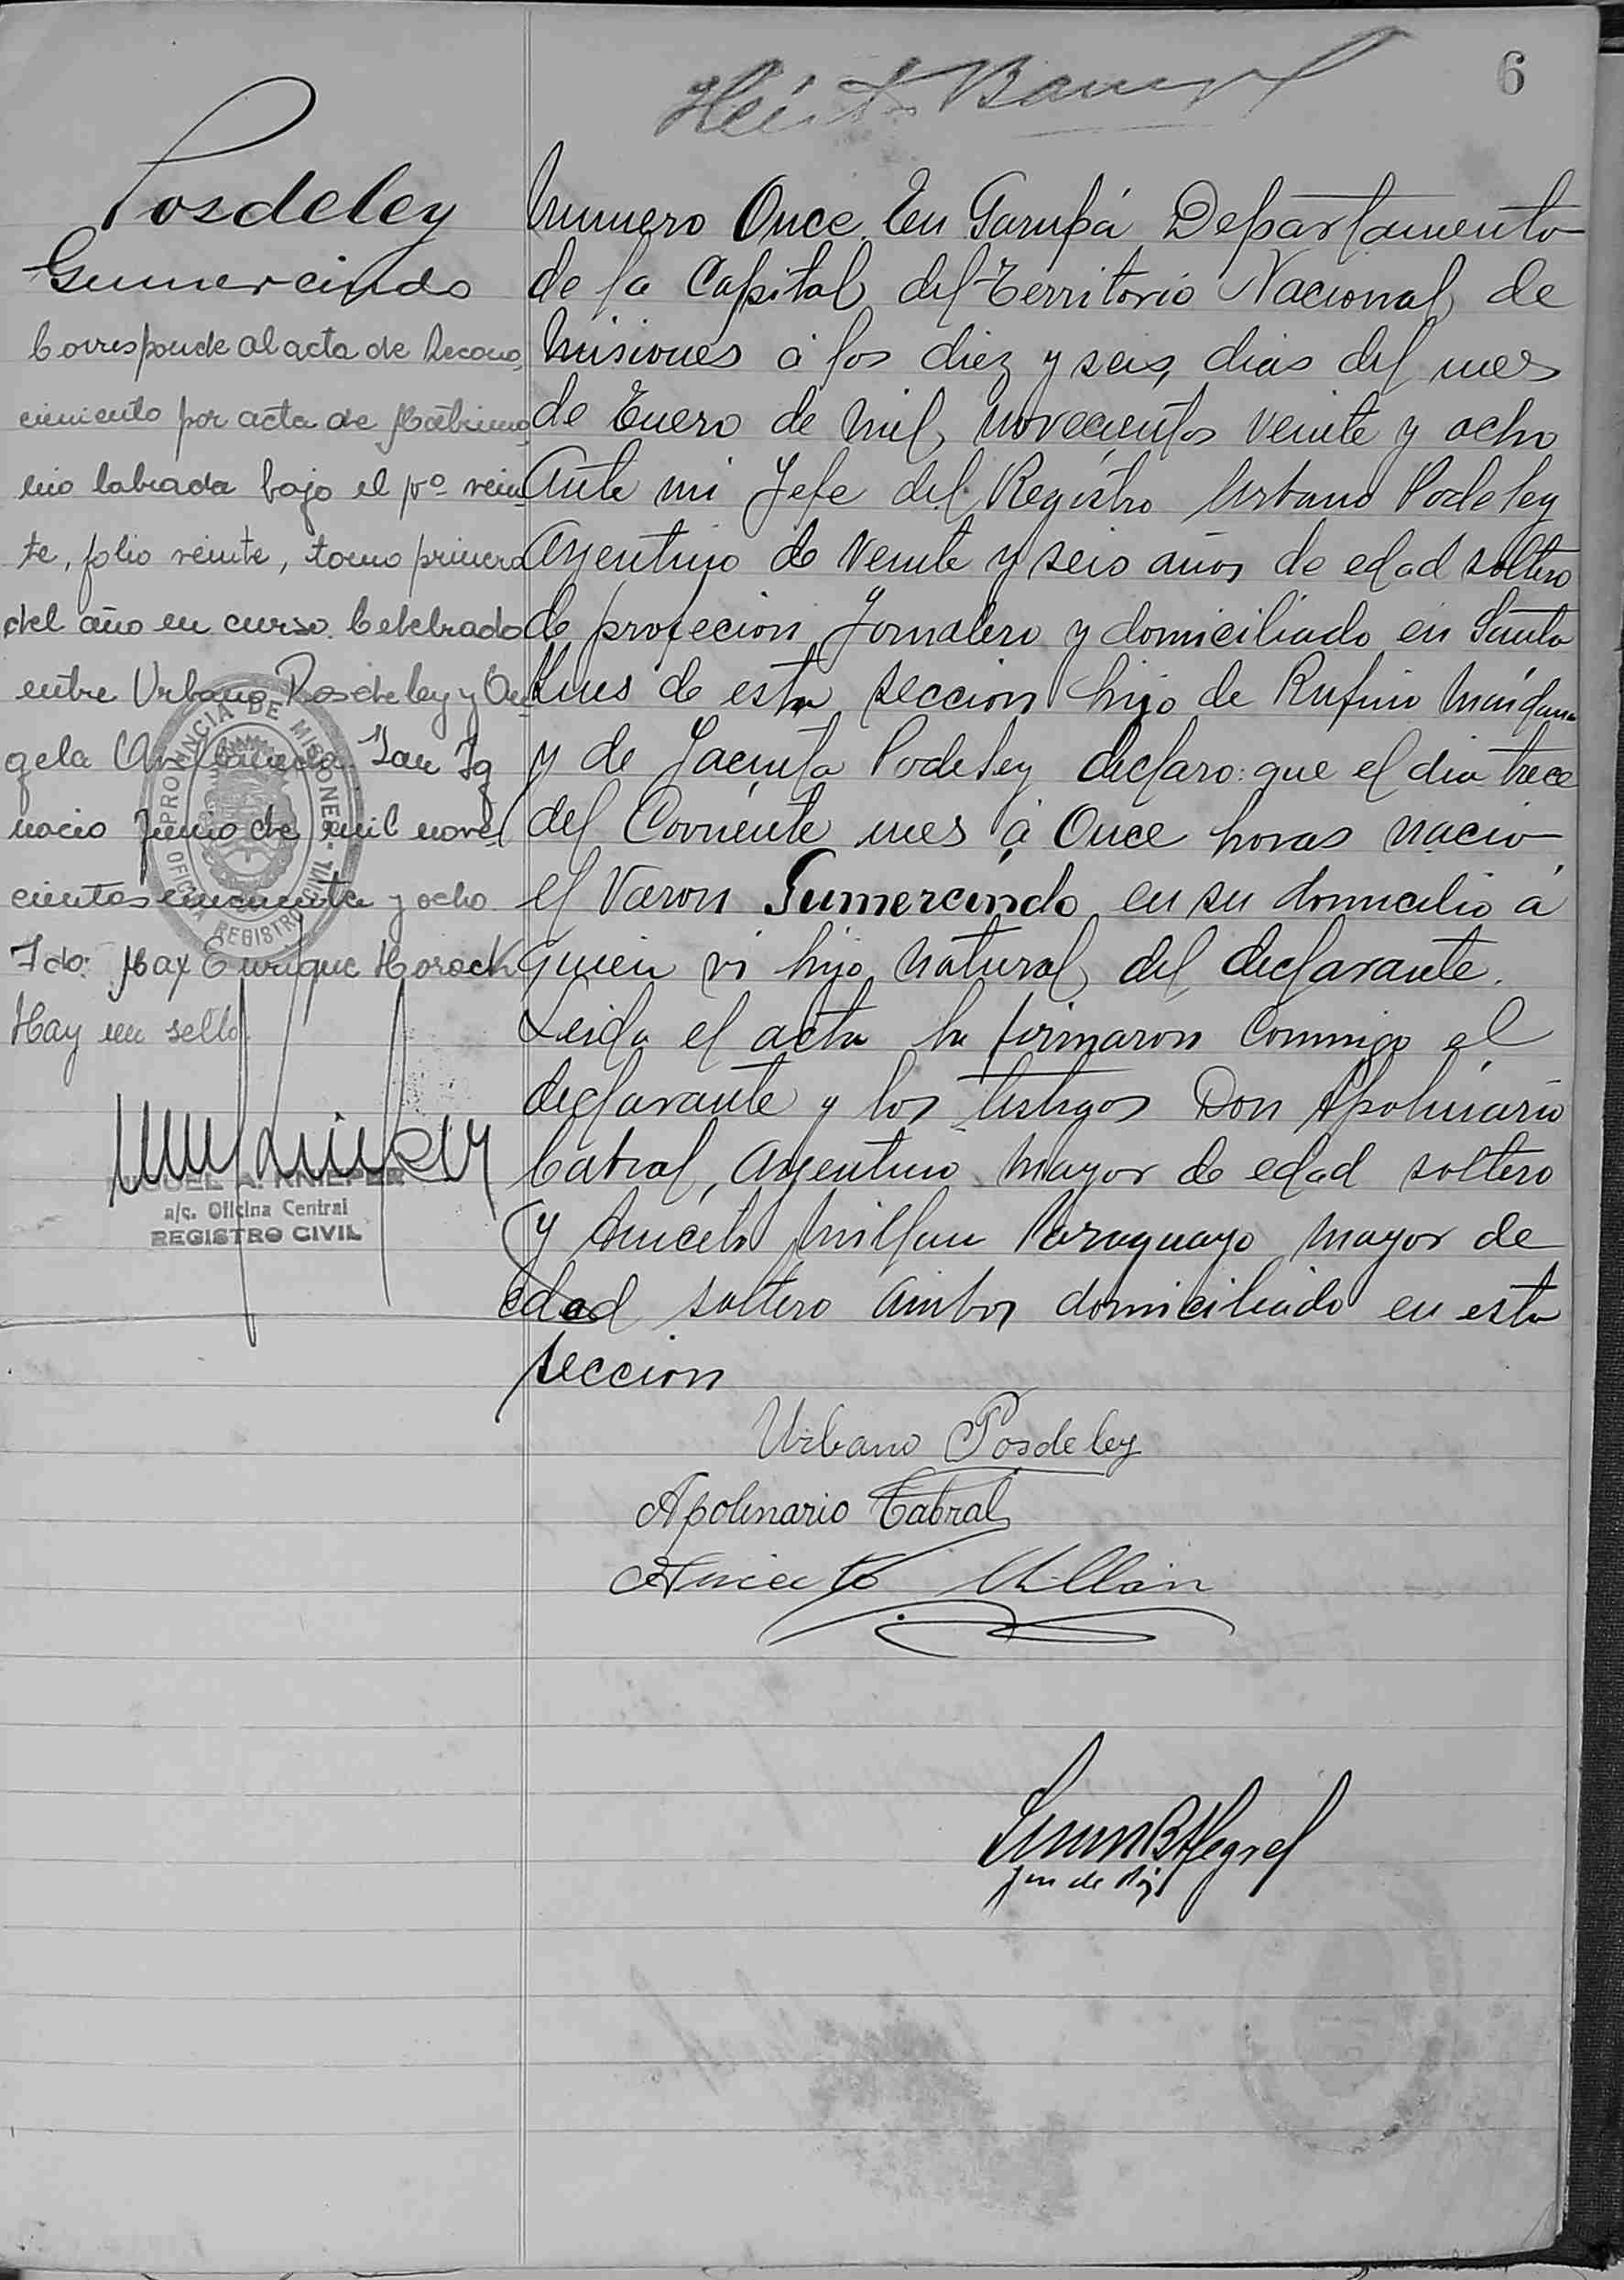 6
Posdeley
Gumercindo
Corresponde al acta de Recono
cimiento por acta de Matrimo
nio labrada bajo el Nº vein
te, folio veinte, tomo primero
del año en curso. Celebrado
entre Urbano Posdeley y An
gela San Ig
nacio Junio de mil nove
cientos cincuenta y ocho
Fdo: Max Enrique Horock
Hay un sello
PROVINCIA DE MISIONES
OFICINA REGISTRO CIVIL
MIGUEL A. KNIEPER
a/c. Oficina Central
REGISTRO CIVIL
Numero Once En Garupá Departamento
de la Capital del Territorio Nacional de
Misiones á los diez y seis, dias del mes
de Enero de mil novecientos veinte y ocho
Ante mi Jefe del Registro Urbano Podeley
Argentino de veinte y seis años de edad soltero
de profecion Jornalero y domiciliado en Santa
Ynes de esta seccion hijo de Rufino
y de Jacinta Podeley declaro: que el dia trece
del Corriente mes á Once horas nacio
el Varon Gumercindo en su domicilio á
quien vi hijo natural del declarante.
Leida el acta la firmaron Conmigo el
declarante y los testigos Don Apolinario
Cabral, Argentino mayor de edad soltero
y Aniceto Millan Paraguayo mayor de
edad soltero ambos domiciliado en esta
seccion
Urbano Posdeley
Apolinario Cabral
Aniceto Millán